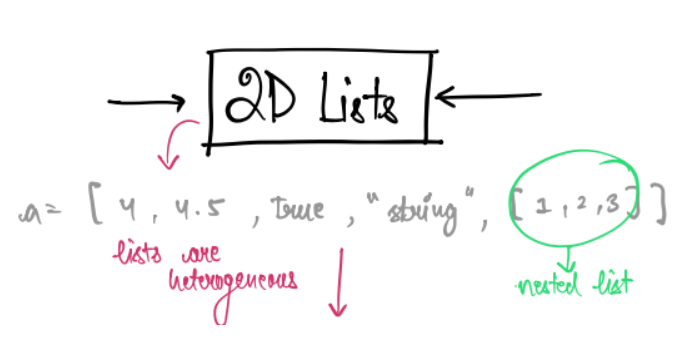 2D Lists
a = [ 4 , 4.5 , True , "string" , [ 1 , 2 , 3 ] ]
lists are
heterogeneous
nested list